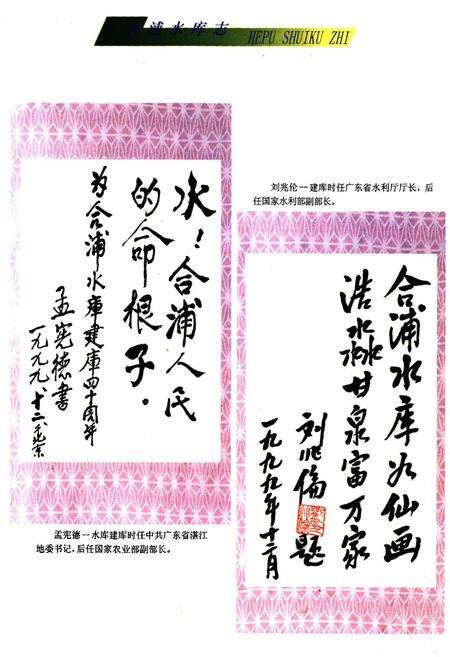 合浦水库志
HEPU SHUIKU ZHI
水！合浦人民
的命根子．
为合浦水库建库四十周年
孟宪德书
一九九九、十二、北京
孟宪德—水库建库时任中共广东省湛江
地委书记，后任国家农业部副部长。
刘兆伦—建库时任广东省水利厅厅长，后
任国家水利部副部长。
合浦水库如仙画
浩淼甘泉富万家
刘兆倫题
一九九九年十二月